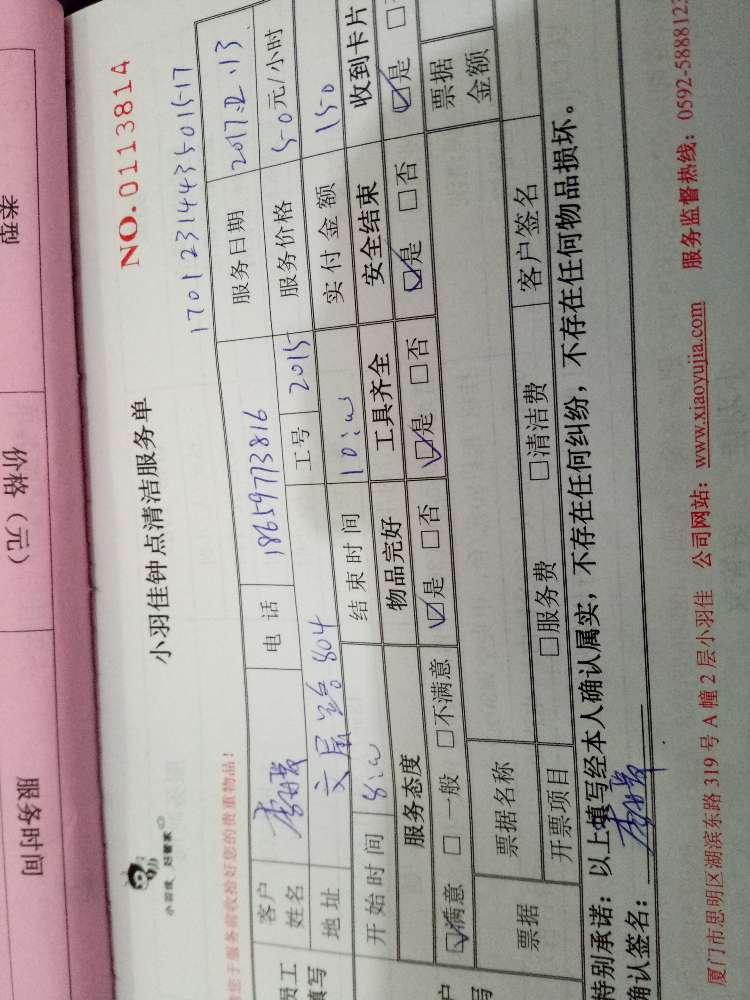 类型
价格（元）
服务时间
小羽佳钟点清洁服务单
NO.0113814
小羽佳 好管家
您于服务前收拾好您的贵重物品！
170123144350151-17
员工
填写
客户
姓名
电 话
18659773816
服务日期
2017.2.13
地址
804
工号
2015
服务价格
50元/小时
开始时间
8:00
结束时间
10:00
实付金额
150
服务态度
物品完好
工具齐全
安全结束
收到卡片
☑满意 □一般 □不满意
☑是 □否
☑是 □否
☑是 □否
☑是
票据
票据名称
票据
金额
开票项目
□服务费 □清洁费
客户签名
特别承诺：以上填写经本人确认属实，不存在任何纠纷，不存在任何物品损坏。
确认签名：
厦门市思明区湖滨东路319号A幢2层小羽佳 公司网站：www.xiaoyujia.com 服务监督热线：0592-5888123